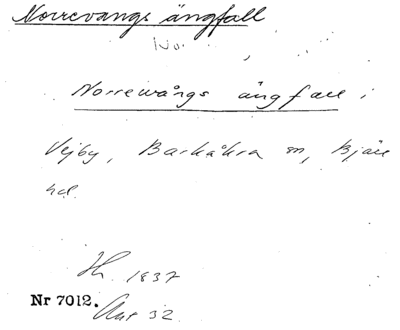 Norrevangs ängfall
No.
Norrewångs ängfall i
Vejby, Barkåkra sn, Bjäre
hd.
Hr. 1837
Nr 7012.
Aug 32.